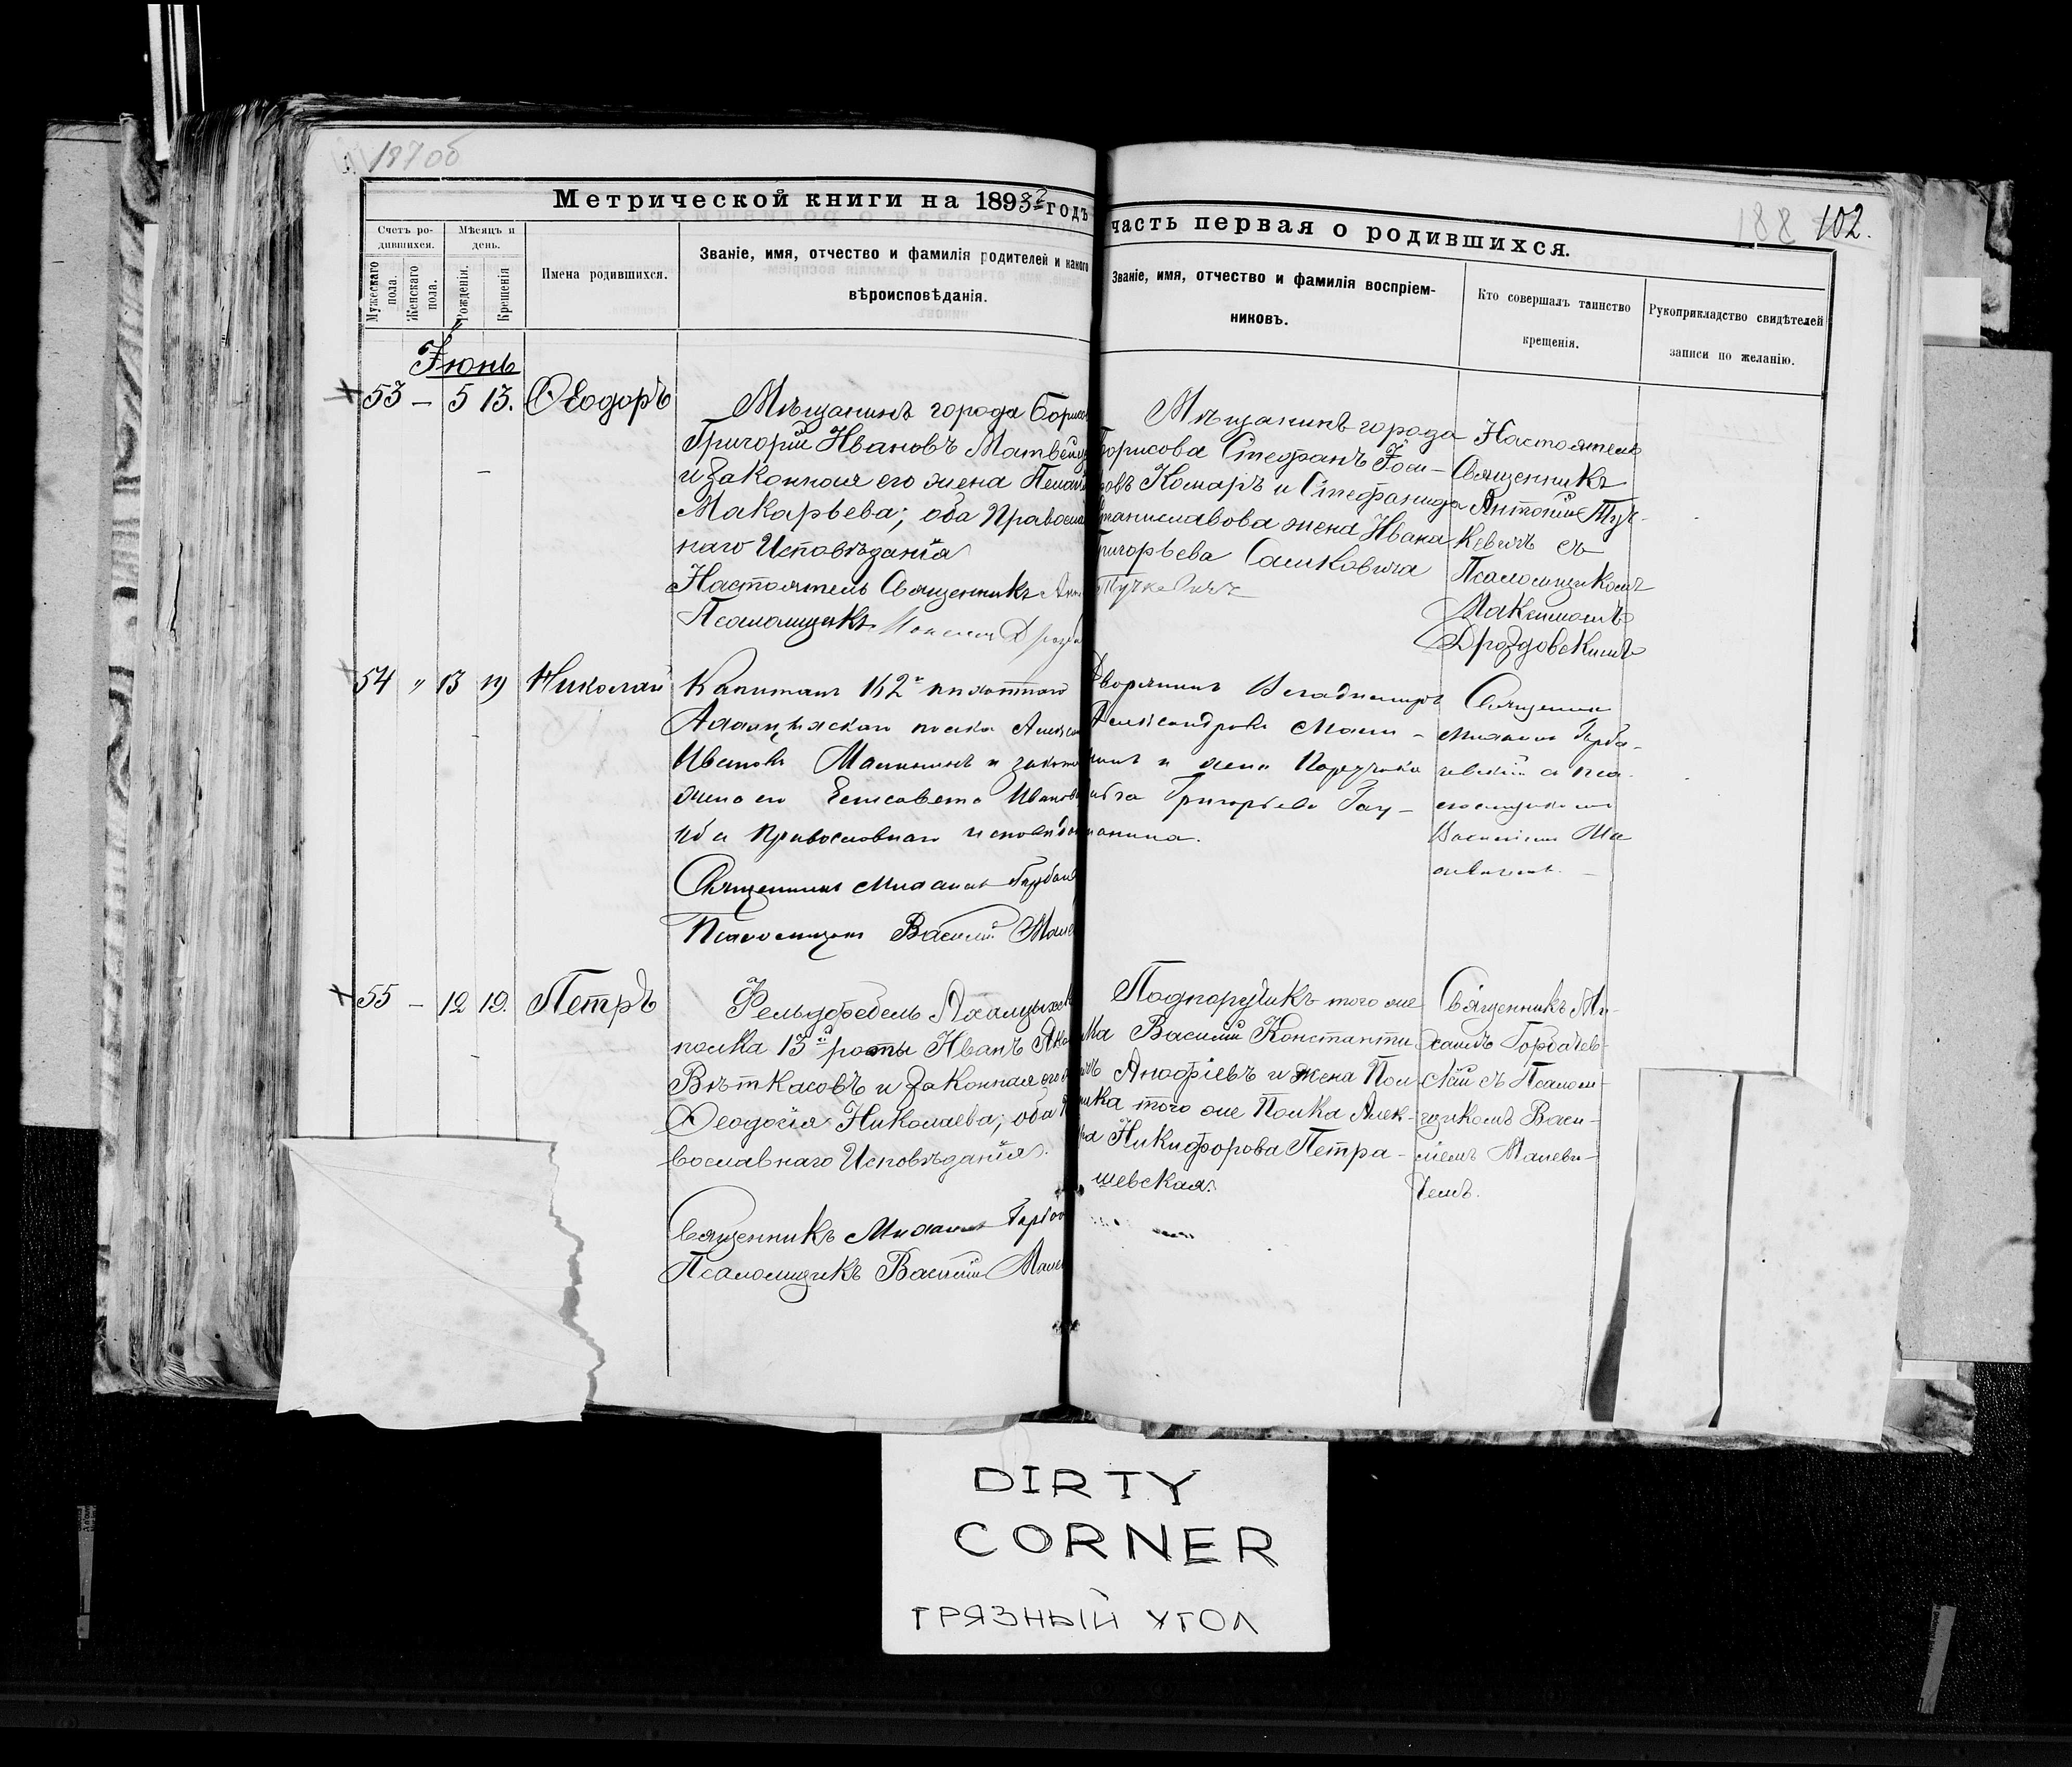 187об
188 102.
Метрической книги на 1893 годъ
часть первая о родившихся.
Счетъ родившихся.
Мужескаго пола.
Женскаго пола.
Мѣсяцъ и день.
Рожденія.
Крещенія
Имена родившихся.
Званіе, имя, отчество и фамилія родителей и какого
вѣроисповѣданія.
Званіе, имя, отчество и фамилія воспріем-
никовъ.
Кто совершалъ таинство
крещенія.
Рукоприкладство свидѣтелей
записи по желанію.
Іюнь
53 — 5 13. Ѳеодоръ
Мѣщанинъ города Борис
Григорій Ивановъ Матвей
и законная его жена Пелаг
Макарьева; оба Правосла
наго Исповѣданія
Настоятель Священникъ Ант
Псаломщикъ Максим Дрозд
Мѣщанинъ города
Борисова Стефанъ Іоси-
овъ Комаръ и Стефанида
Станиславова жена Ивана
Григорьева Сашковича
Тучкевичъ
Настоятель
Священникъ
Антоній Туч-
кевичъ съ
Псаломщикомъ
Максимомъ
Дроздовскимъ
54 " 13 19 Николай
Капитанъ 162го пѣхотнаго
Ахалцыхскаго полка Алексан
Ивановъ Малининъ и законн
жена его Елисавета Иванов
оба Православнаго исповѣдан
Священникъ Михаилъ Горбач
Псаломщикъ Василій Мале
Дворянинъ Владимиръ
Александровъ Мали-
нинъ и жена Поручика
Григорьева Гау-
манна.
Священник
Михаилъ Горба-
чевскій с пса-
ломщикомъ
Василіемъ Ма
левичемъ.
55 — 12 19. Петръ
Фельдфебель Ахалцыхск
полка 13й роты Иванъ Яков
Вѣткасовъ и законная его ж
Ѳеодосія Николаева; оба П
вославнаго Исповѣданія.
Священникъ Михаилъ Горбач
Псаломщикъ Василій Мале
Подпоручикъ того же
лка Василій Константи
Анофріевъ и жена Пол
ника того же Полка Алек-
ра Никифорова Петра-
шевская.
Священникъ Ми-
хаилъ Горбачев-
скій съ Псалом-
щикомъ Васи-
ліемъ Малеви-
чемъ.
DIRTY
CORNER
ГРЯЗНЫЙ УГОЛ